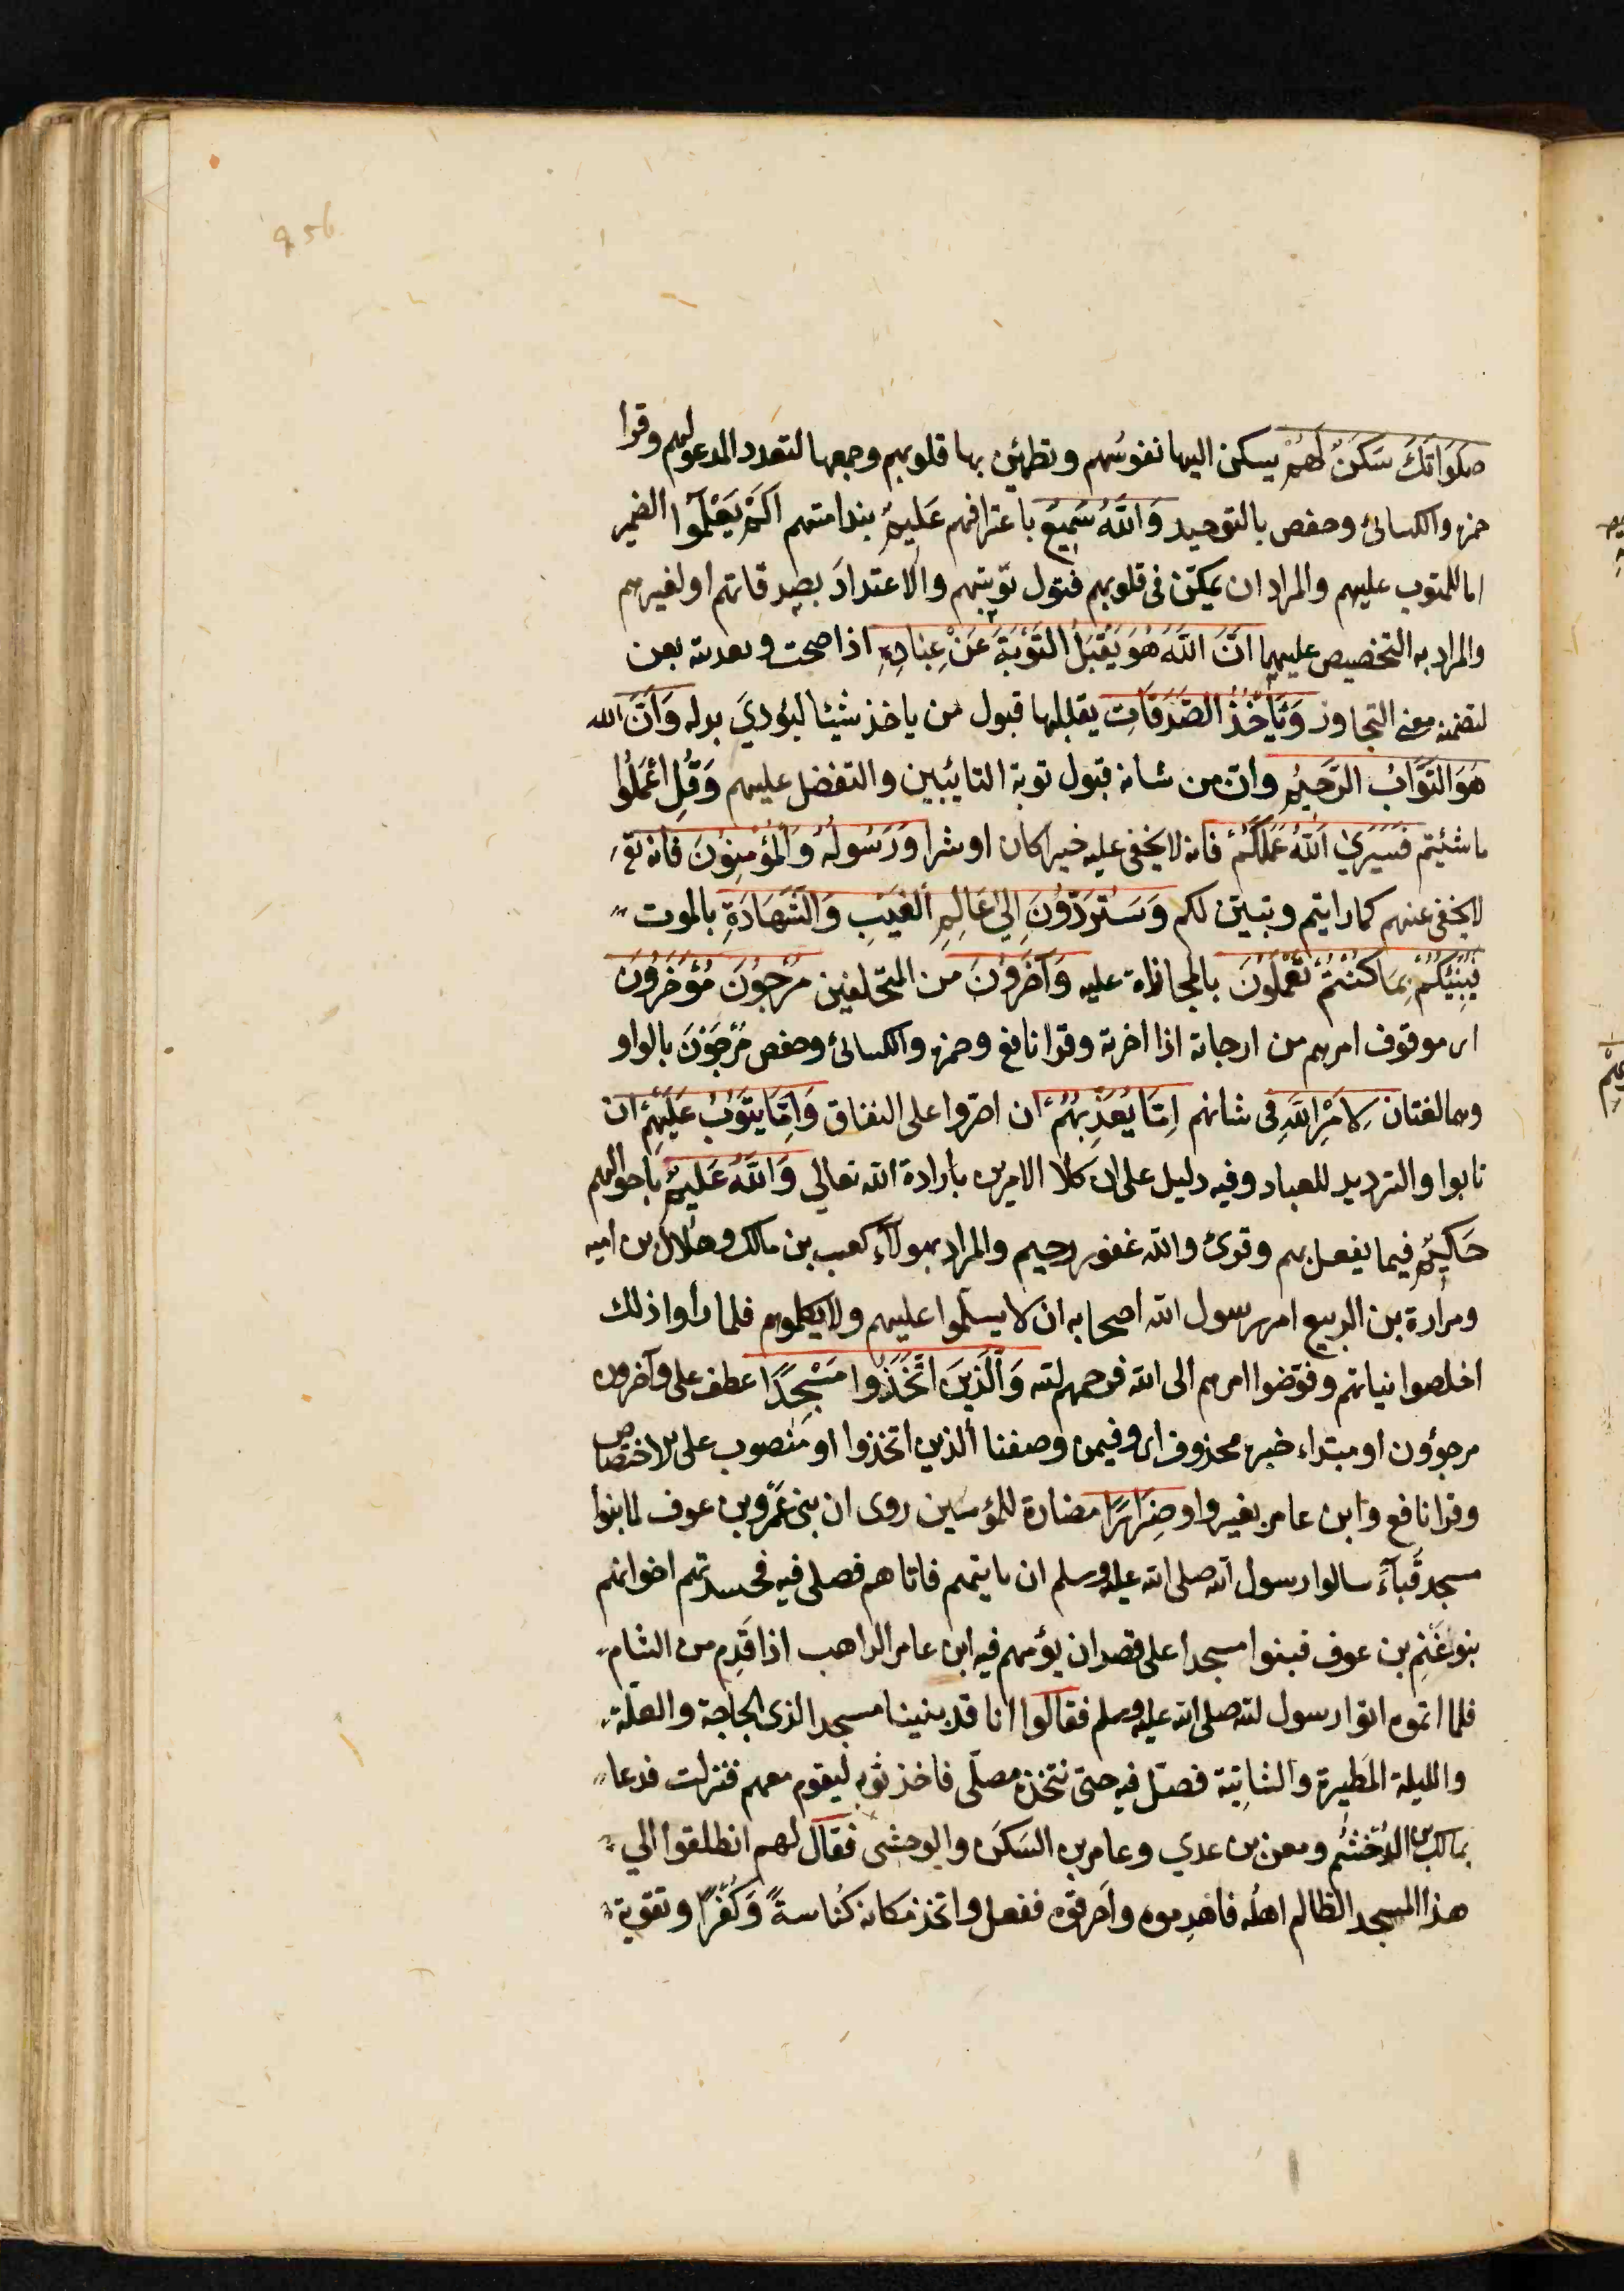 956
صَلَوَاتَكَ سَكَنٌ لَهُمْ يسكن اليها نفوسُهم وتطمئن بها قلوبهم وجمعها لتعدد المدعو لهم وقرا
حمزه والكسائى وحفص بالتوحيد وَاللهُ سَمِيعٌ باعترافهم عَلِيمٌ بندامتهم اَلَمْ يَعْلَمُوا الضمير
اما للمتوب عليهم والمراد ان يمكن فى قلوبهم قبول توبتهم والاعتدادَ بصدقاتهم او لغيرهم
والمراد به التخصيص عليهما اَنَّ اللهَ هُوَ يَقْبَلُ التَّوْبَةَ عَنْ عِبَادِهِ اذا صحت وتعديته بعن
لتضمنه معنى التجاوز وَيَأْخُذُ الصَّدَقَاتِ يقبلها قبول من ياخذ شيئا ليؤديَ بدله وَاَنَّ الله
هُوَ التَّوَّابُ الرَّحِيمُ وان من شانه قبول توبة التايئبين والتفضل عليهم وَقُلِ اعْمَلُوا
ما شئيتم فَسَيَرَي اللهُ عَمَلَكُمْ فانه لا يخفى عليه خيرا كان او شرا وَرَسُولُهُ وَالْمُؤْمِنُونَ فانه تع
لا يخفى عنهم كما رايتم وتبين لكم وَسَتُرَدُّونَ اِلَي عَالِمِ الْغَيْبِ وَالشَّهَادَةِ بالموت
فَيُنَبِّئُكُمْ بِمَا كُنْتُمْ تَعْمَلُونَ بالمجازاة عليه وَآخَرُونَ من المتخلفين مُرْجَوْنَ مُؤَخَّرُونَ
اى موقوف امرهم من ارجاته اذا اخرته وقرا نافع وحمزه والكسائى وحفص مُرْجَوْنَ بالواو
وهما لغتان لِاَمْرِ اللهِ فى شانهم اِمَّا يُعَذِّبُهُمْ ان اصروا على النفاق وَاِمَّا يَتُوبُ عَلَيْهِمْ ان
تابوا والترديد للعباد وفيه دليل على ان كلا الامرين بارادة الله تعالي وَاللهُ عَلِيمٌ باحوالهم
حَكِيمٌ فيما يفعل بهم وقرئ والله غفور رحيم والمراد بهولآء كعب بن مالك وهلال بن اميه
ومرارة بن الربيع امر رسول الله اصحابه ان لا يسلموا عليهم ولا يكلموهم فلما رأوا ذلك
اخلصوا نياتهم وفوّضوا امرهم الى الله فرحمهم لله وَالَّذِينَ اتَّخَذُوا مَسْجِدًا عطف على وآخرون
مرجؤون او مبتداء خبره محذوف اى وفيمن وصفنا الذين اتخذوا او منصوب على الاختصاص
وقرا نافع وابن عامر بغير واو ضِرَارًا مضارة للمؤمنين روى ان بنى عَمْرو بن عوف لما بنوا
مسجد قبآءَ سالوا رسول الله صلى الله عليه وسلم ان ياتيهم فاتاهم فصلى فيه فحسدتهم اخوانهم
بنو غَنْمِ بن عوف فبنوا مسجدا على قصد ان يؤمهم فيه ابن عامر الراهب اذا قدِم من الشام
فلما اتموه اتوا رسول لله صلى الله عليه وسلم فقالوا انا قد بنينا مسجدا لذى الحاجة والعلّة
والليلة المَطيرة والشاتِية فصَلّ فيه حتى نتخذه مصلّى فاخذ ثوبه ليقوم معهم فنزلت فدعا
بمالك بن الدُخْشُم ومعن بن عدي وعامر بن السَكَن والوحشى فقال لهم انطلقوا الي
هذا المسجد الظالم اهلُه فاهدِموه واَحرقوه ففعل واتخذ مكانه كُناسةً وَكُفْرًا وتقوية